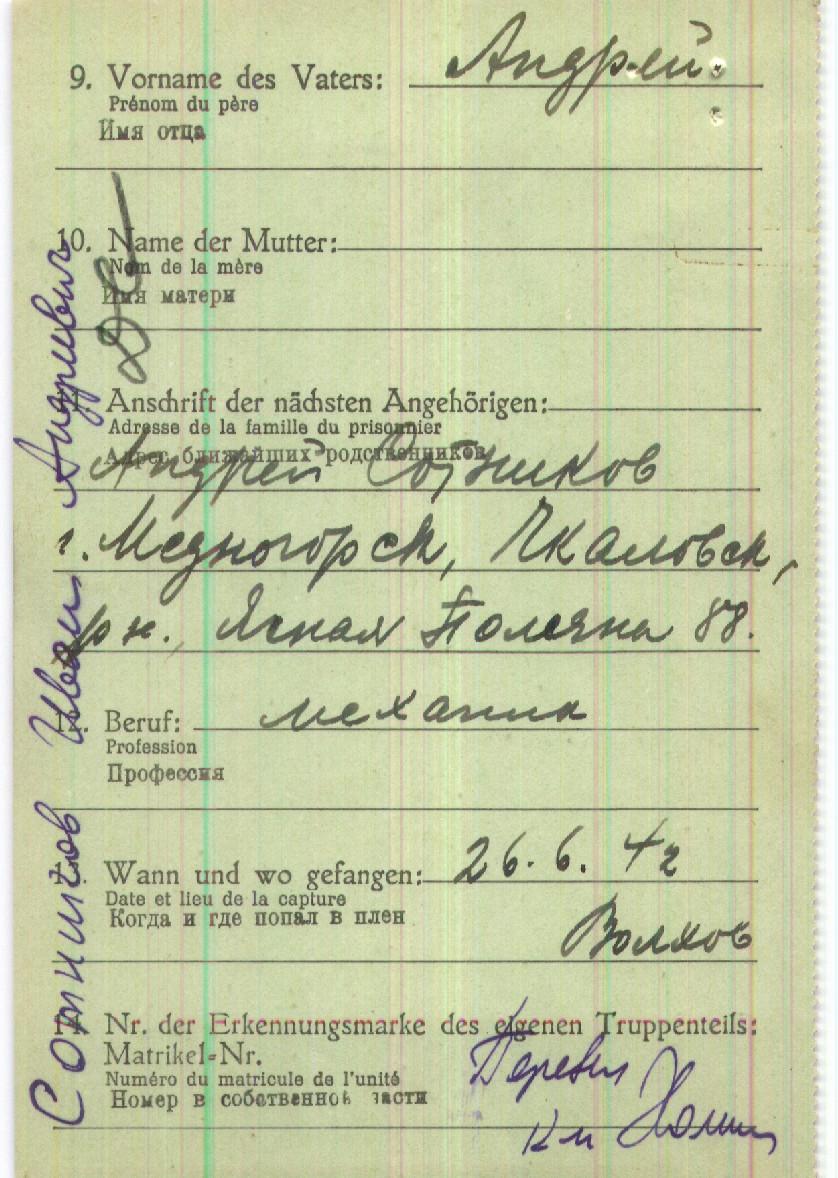 9. Vorname des Vaters: Андрей
Prénom du père
Имя отца
10. Name der Mutter:
Nom de la mère
Имя матери
11. Anschrift der nächsten Angehörigen:
Adresse de la famille du prisonnier
Адрес ближайших родственников
Андрей Сотников
г. Медногорск, Чкаловск,
рн., Ясная Поляна 88.
12. Beruf: механик
Profession
Профессия
13. Wann und wo gefangen: 26. 6. 42
Date et lieu de la capture
Когда и где попал в плен
Волхов
14. Nr. der Erkennungsmarke des eigenen Truppenteils:
Matrikel-Nr.
Numéro du matricule de l'unité
Номер в собственной части
Перевел
Сотников Иван Андреевич